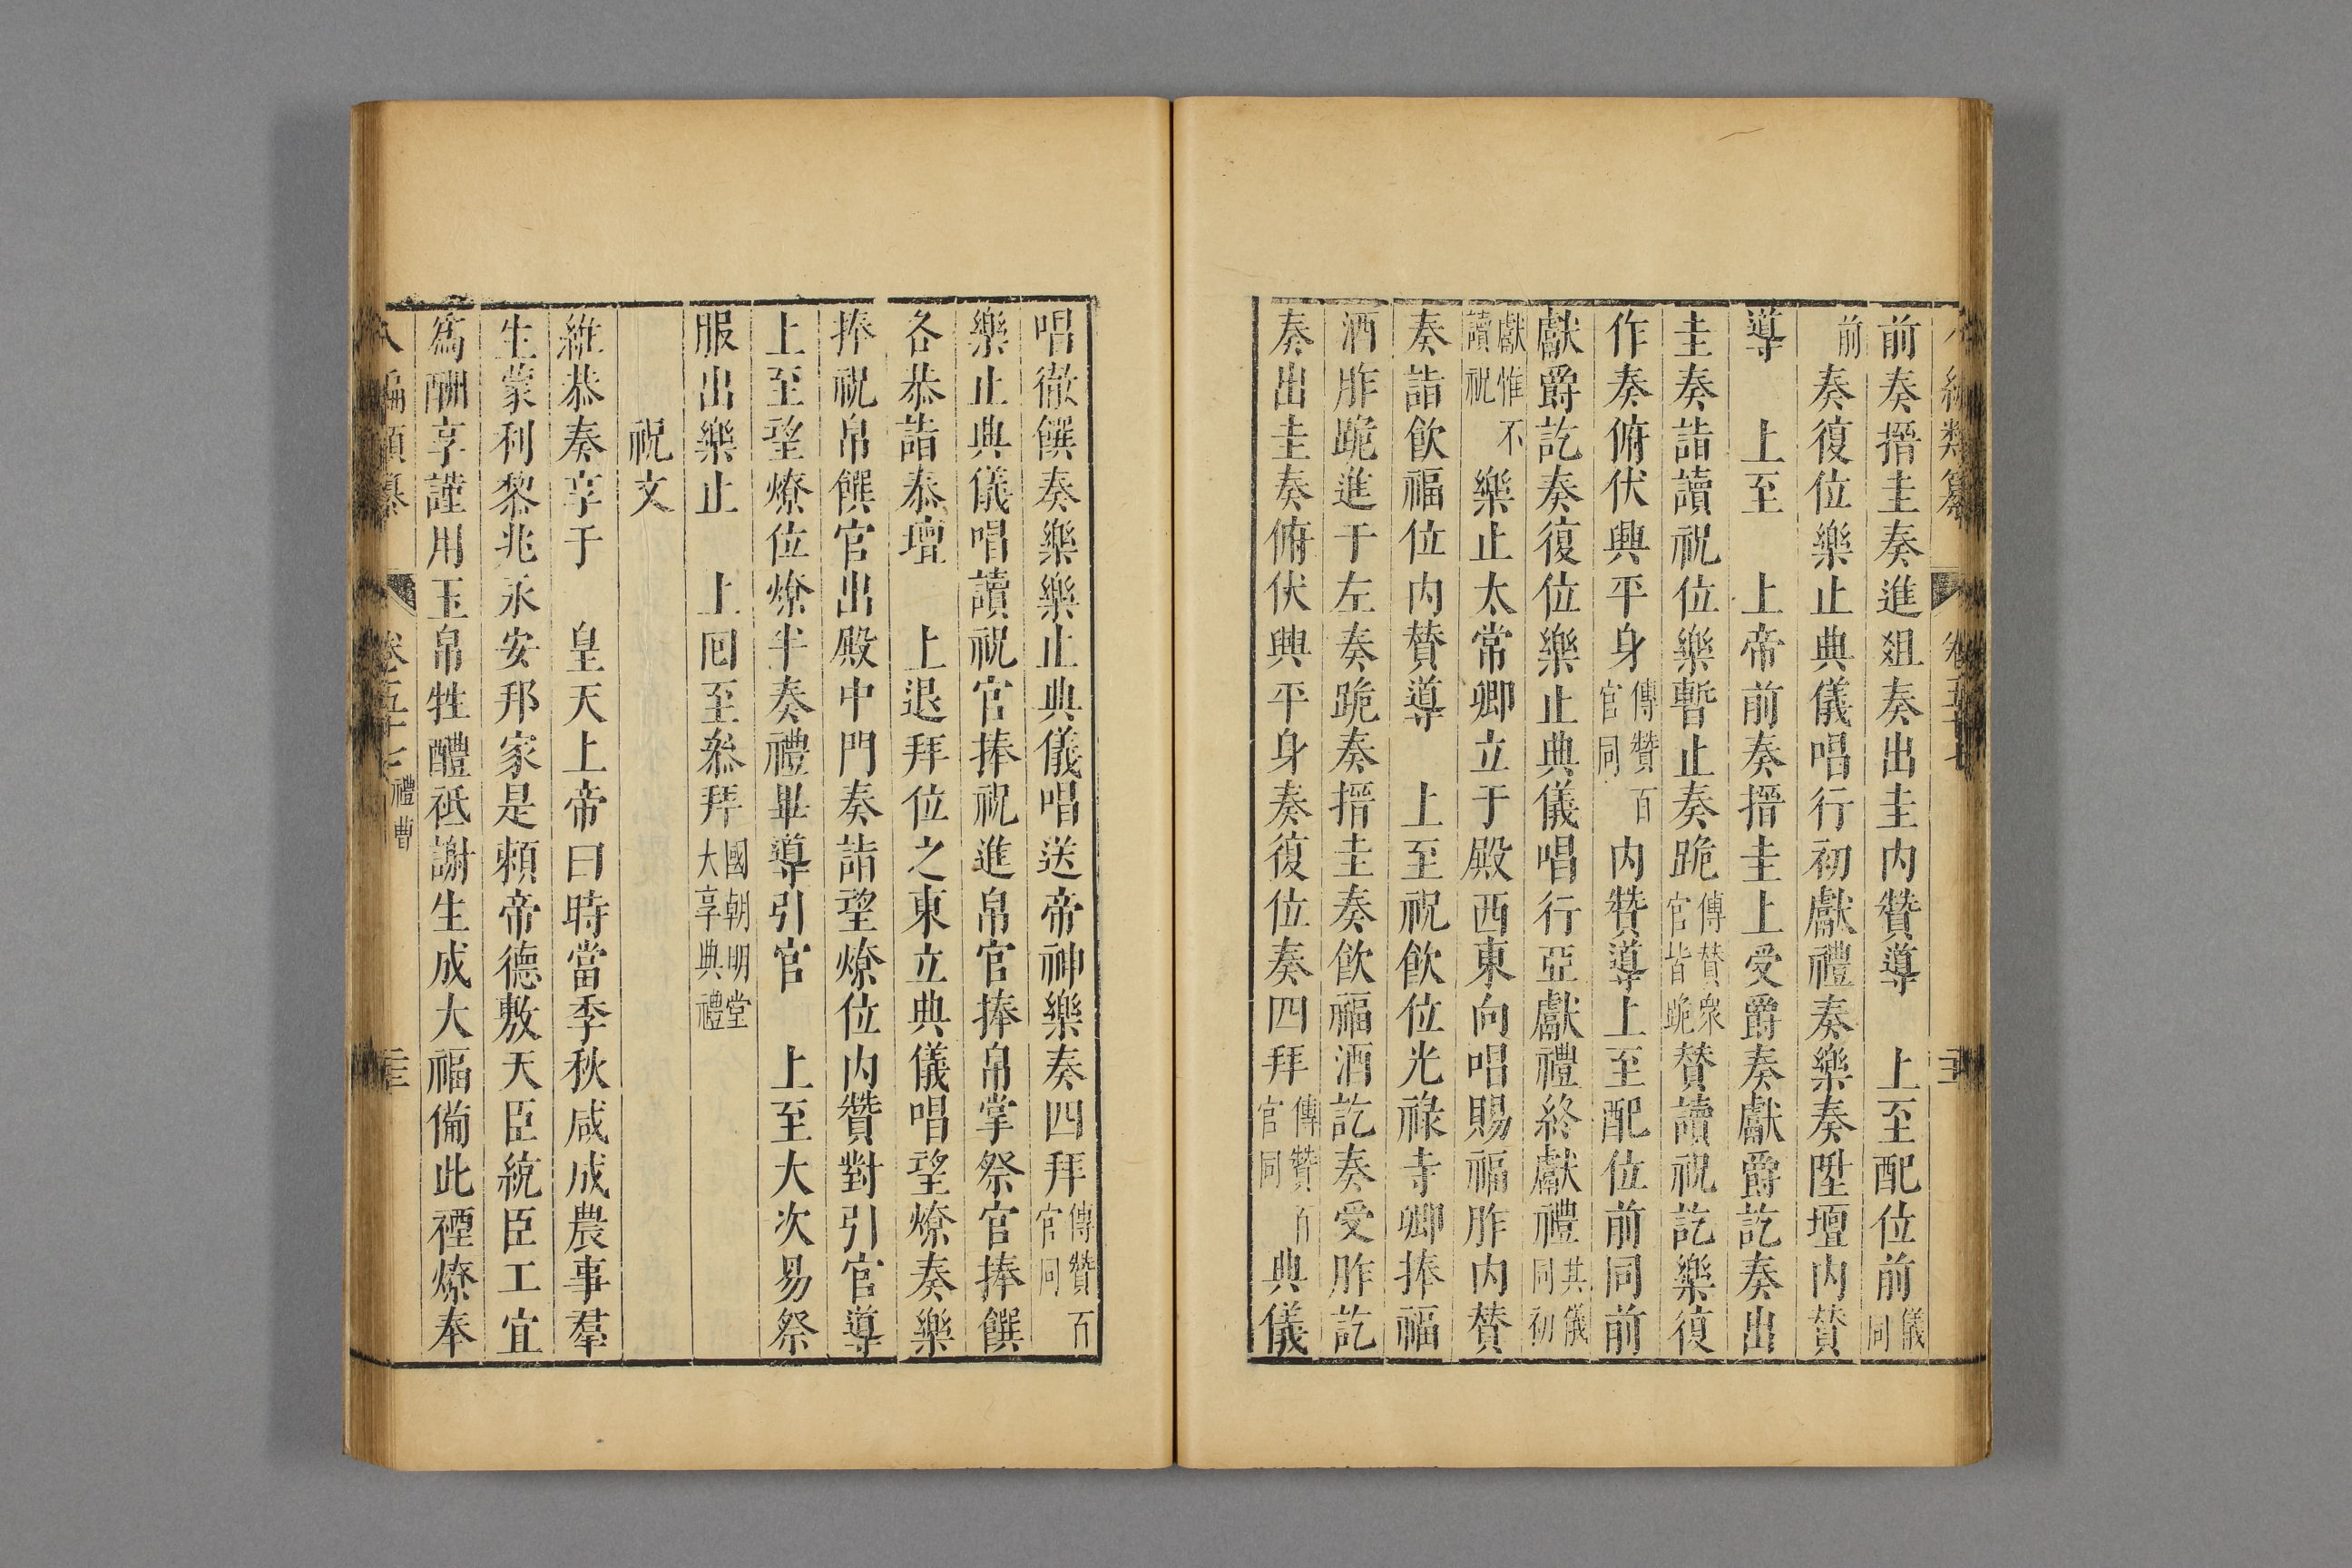 八編類纂 卷五十七
前奏搢圭奏進俎奏出圭内贊導 上至配位前儀同
前奏復位樂止典儀唱行初獻禮奏樂奏陞壇内贊
導 上至 上帝前奏搢圭上受爵奏獻爵訖奏出
圭奏詣讀祝位樂暫止奏跪傳贊衆官皆跪贊讀祝訖樂復
作奏俯伏興平身傳贊百官同内贊導上至配位前同前
獻爵訖奏復位樂止典儀唱行亞獻禮終獻禮其儀同初
獻惟不讀祝樂止太常卿立于殿西東向唱賜福胙内贊
奏詣飲福位内贊導 上至祝飲位光祿寺卿捧福
酒胙跪進于左奏跪奏搢圭奏飲福酒訖奏受胙訖
奏出圭奏俯伏興平身奏復位奏四拜傳贊百官同典儀
唱徹饌奏樂樂止典儀唱送帝神樂奏四拜傳贊百官同
樂止典儀唱讀祝官捧祝進帛官捧帛掌祭官捧饌
各恭詣泰壇 上退拜位之東立典儀唱望燎奏樂
捧祝帛饌官出殿中門奏詣望燎位内贊對引官導
上至望燎位燎半奏禮畢導引官 上至大次易祭
服出樂止 上囘至叅拜國朝明堂大享典禮
祝文
維恭奏享于 皇天上帝曰時當季秋咸成農事羣
生蒙利黎兆永安邦家是賴帝德敷天臣統臣工宜
爲酬享謹用玉帛牲醴祗謝生成大福備此禋燎奉
八編類纂 卷五十七 禮曹